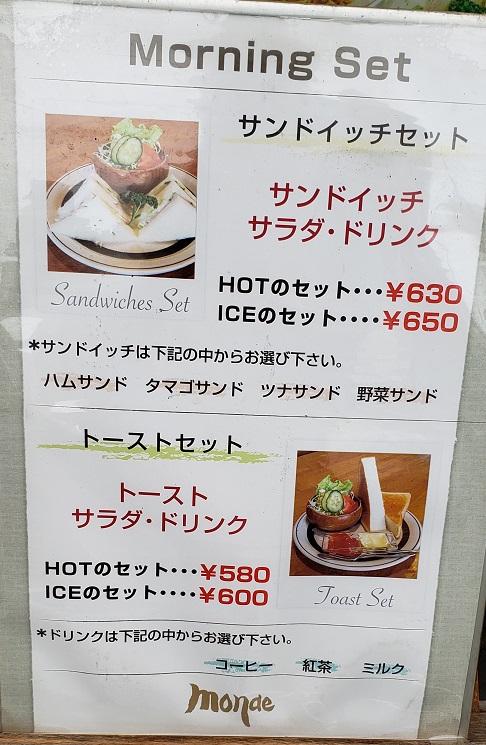 Morning Set
サンドイッチセット
サンドイッチ
サラダ・ドリンク
HOTのセット･･･¥630
ICEのセット････¥650
Sandwiches Set
*サンドイッチは下記の中からお選び下さい。
ハムサンド タマゴサンド ツナサンド 野菜サンド
トーストセット
トースト
サラダ・ドリンク
HOTのセット････¥580
ICEのセット････¥600
Toast Set
*ドリンクは下記の中からお選び下さい。
コーヒー 紅茶 ミルク
monde